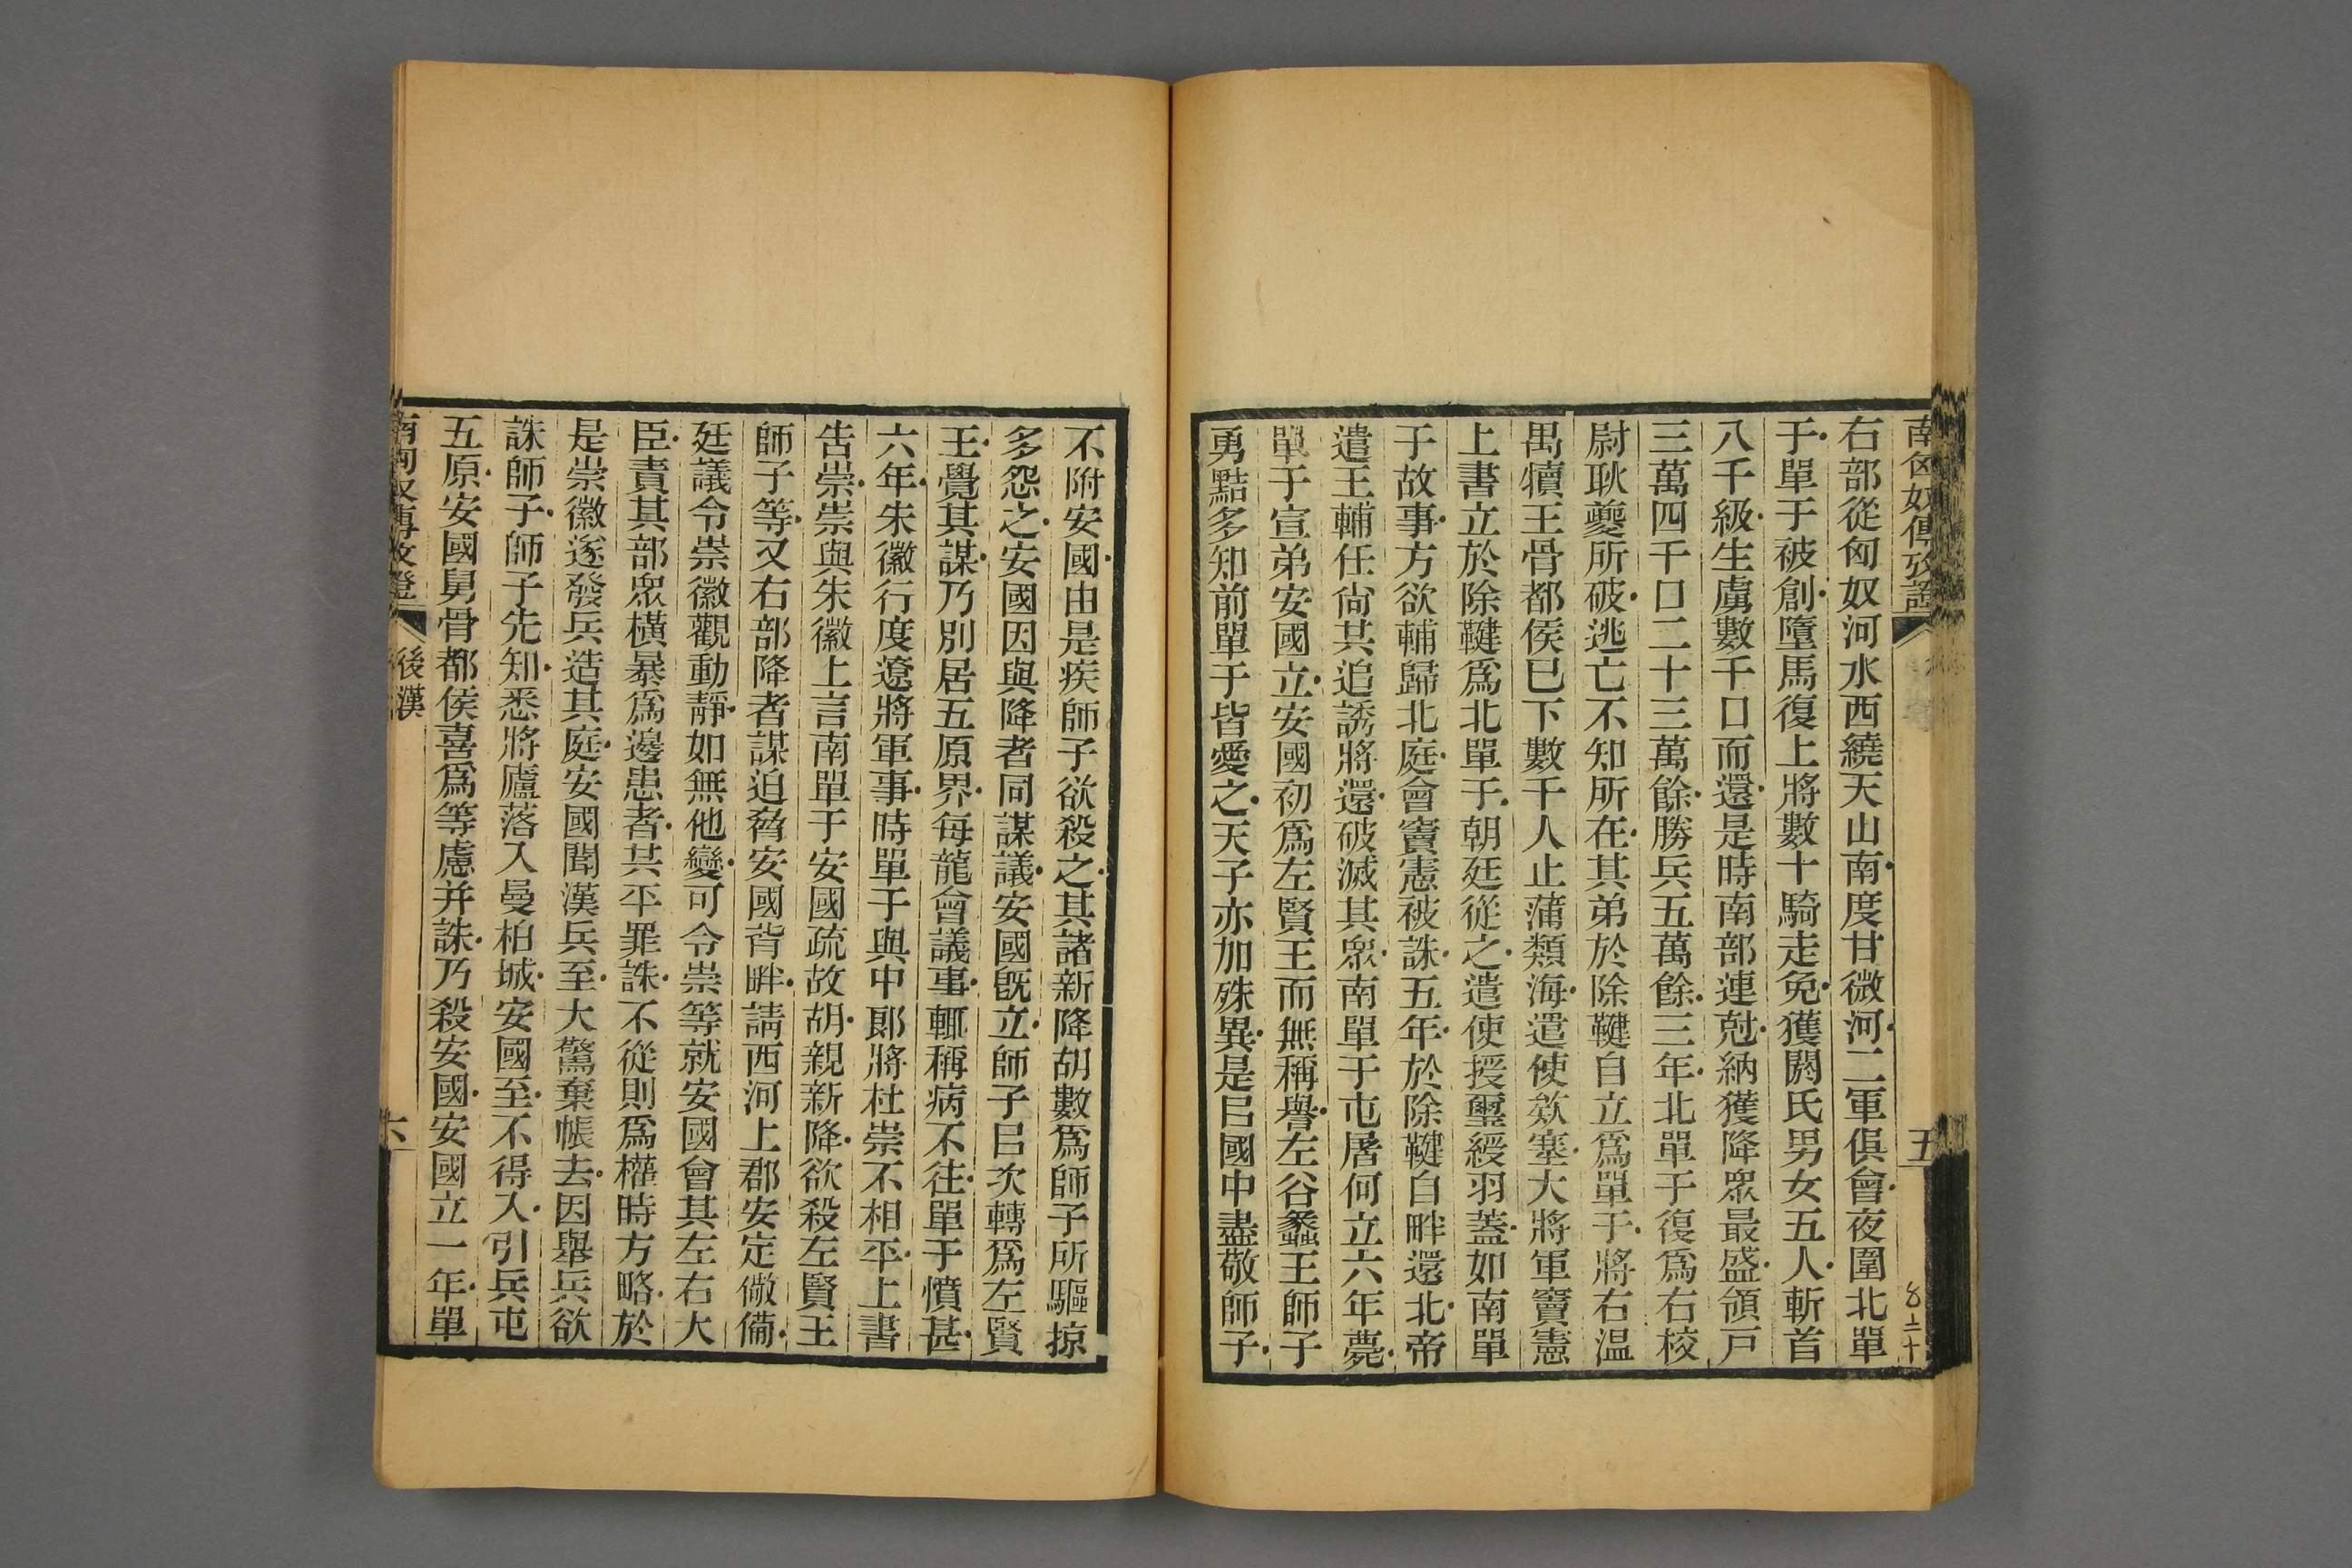 南匈奴傳攷證
五
右部從匈奴河水西繞天山南度甘微河二軍俱會夜圍北單
于單于被創墮馬復上將數十騎走免獲閼氏男女五人斬首
八千級生虜數千口而還是時南部連尅納獲降眾最盛領戸
三萬四千口二十三萬餘勝兵五萬餘三年北單于復爲右校
尉耿夔所破逃亡不知所在其弟於除鞬自立爲單于將右温
禺犢王骨都侯已下數千人止蒲類海遣使欵塞大將軍竇憲
上書立於除鞬爲北單于朝廷從之遣使授璽綬羽蓋如南單
于故事方欲輔歸北庭會竇憲被誅五年於除鞬自畔還北帝
遣王輔任尙共追誘將還破滅其眾南單于屯屠何立六年薨
單于宣弟安國立安國初爲左賢王而無稱譽左谷蠡王師子
勇黠多知前單于皆愛之天子亦加殊異是㠯國中盡敬師子
不附安國由是疾師子欲殺之其諸新降胡數爲師子所驅掠
多怨之安國因與降者同謀議安國旣立師子㠯次轉爲左賢
王覺其謀乃別居五原界每龍會議事輒稱病不往單于憤甚
六年朱徽行度遼將軍事時單于與中郎將杜崇不相平上書
吿崇崇與朱徽上言南單于安國疏故胡親新降欲殺左賢王
師子等又右部降者謀迫脅安國背畔請西河上郡安定儆備
廷議令崇徽觀動靜如無他變可令崇等就安國會其左右大
臣責其部眾橫暴爲邊患者共平罪誅不從則爲權時方略於
是崇徽遂發兵造其庭安國聞漢兵至大驚棄帳去因舉兵欲
誅師子師子先知悉將廬落入曼柏城安國至不得入引兵屯
五原安國舅骨都侯喜爲等慮并誅乃殺安國安國立一年單
南匈奴傳攷證
後漢
六